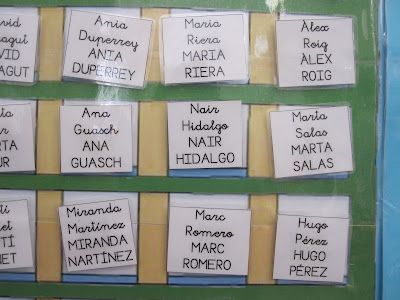 David
VID
Ania
Duperrey
ANIA
DUPERREY
Maria
Riera
MARIA
RIERA
Àlex
Roig
ÀLEX
ROIG
Ana
Guasch
ANA
GUASCH
Nair
Hidalgo
NAIR
HIDALGO
Marta
Salas
MARTA
SALAS
Miranda
Martínez
MIRANDA
NARTÍNEZ
Marc
Romero
MARC
ROMERO
Hugo
Pérez
HUGO
PÉREZ